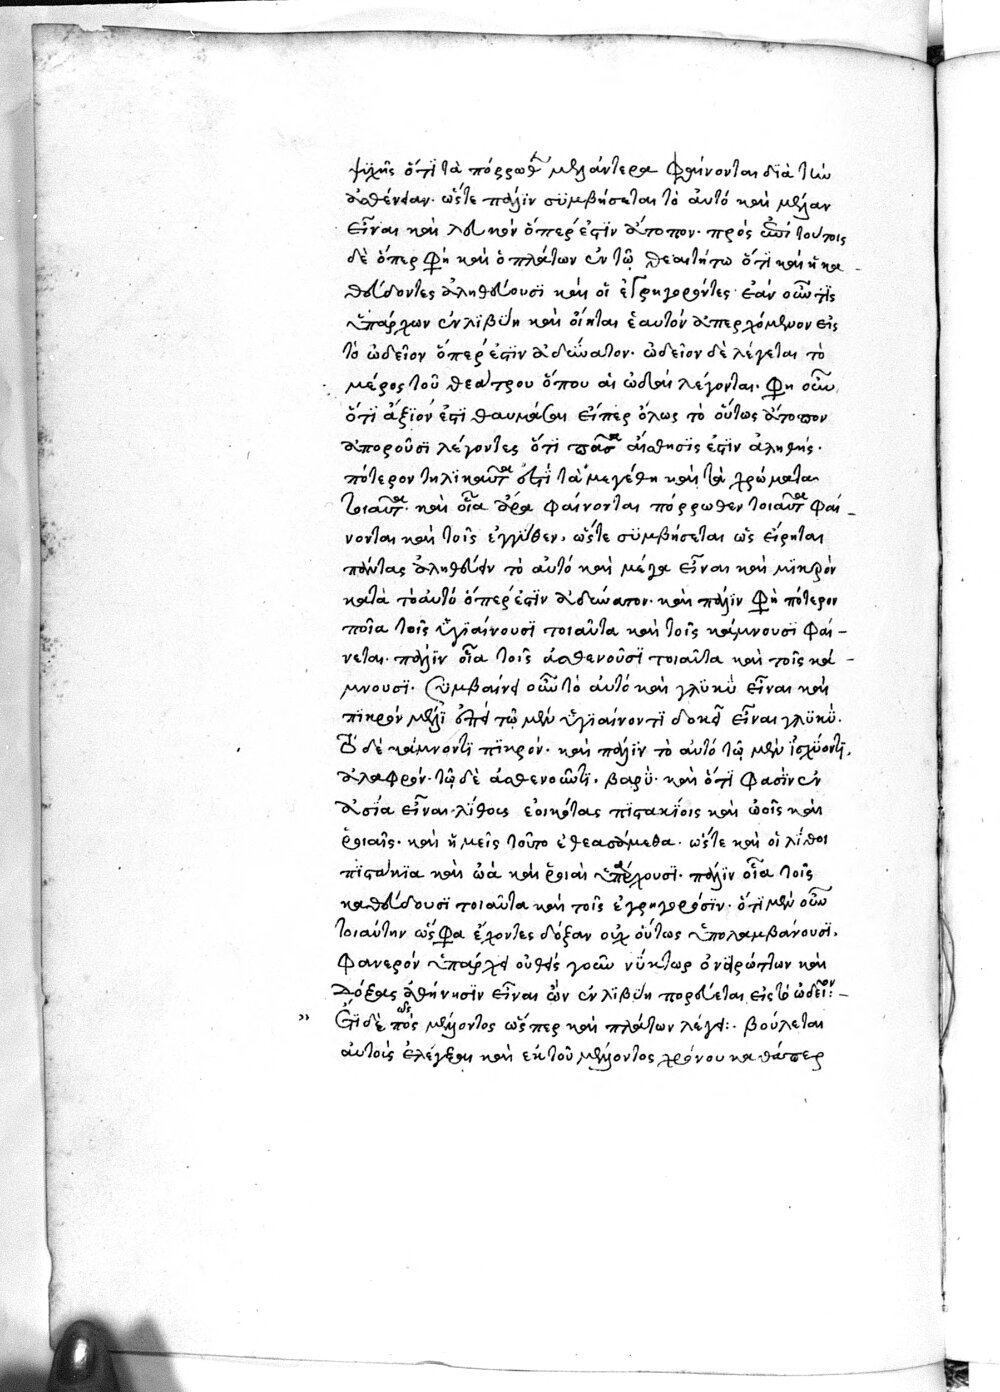 ψιλῆς ὅτι τὰ πόρρωθεν μελάντερα φαίνονται διὰ τὴν
ἀσθένειαν. ὥστε πάλιν συμβήσεται τὸ αὐτὸ καὶ μέλαν
εἶναι καὶ λευκὸν ὅπερ ἐστὶν ἄτοπον. πρὸς ἐπὶ τούτοις
δὲ ὅπερ φησὶ καὶ ὁ πλάτων ἐν τῶ θεαιτήτω ὅτι καὶ οἱ κα-
θεύδοντες ἀληθεύουσι καὶ οἱ ἐγρηγορότες. ἐὰν οὖν τις
ὑπάρχων ἐν λιβύη καὶ οἴηται ἑαυτὸν ἀπερχόμενον εἰς
τὸ ὠδεῖον ὅπερ ἐστὶν ἀδύνατον. ὠδεῖον δὲ λέγεται τὸ
μέρος τοῦ θεάτρου ὅπου αἱ ὠδαὶ λέγονται. φησὶ οὖν
ὅτι ἄξιόν ἐστι θαυμάσαι εἴπερ ὅλως τὸ οὕτως ἄτοπον
ἀποροῦσι λέγοντες ὅτι πᾶσα αἴσθησις ἐστὶν ἀληθής.
πότερον τηλικαῦτα ἐστὶ τὰ μεγέθη καὶ τὰ χρώματα
τοιαῦτα. καὶ οἷα ἄρα φαίνονται πόρρωθεν τοιαῦτα φαί-
νονται καὶ τοῖς ἐγγύθεν, ὥστε συμβήσεται ὡς εἴρηται
πάντας ἀληθεύειν τὸ αὐτὸ καὶ μέγα εἶναι καὶ μικρὸν
κατὰ τὸ αὐτὸ ὅπερ ἐστὶν ἀδύνατον. καὶ πάλιν φησὶ πότερον
ποῖα τοῖς ὑγιαίνουσι τοιαῦτα καὶ τοῖς κάμνουσι φαί-
νεται. πάλιν οἷα τοῖς ἀσθενοῦσι τοιαῦτα καὶ τοῖς κά-
μνουσι. συμβαίνει οὖν τὸ αὐτὸ καὶ γλυκὺ εἶναι καὶ
πικρὸν μέλι ἐπεὶ τῶ μὲν ὑγιαίνοντι δοκεῖ εἶναι γλυκύ.
τῶ δὲ κάμνοντι πικρόν. καὶ πάλιν τὸ αὐτὸ τῶ μὲν ἰσχύοντι,
ἐλαφρόν. τῶ δὲ ἀσθενοῦντι. βαρύ. καὶ ὅτι φασὶν ἐν
ἀσία εἶναι λίθους ἐοικότας πιστακίοις καὶ ὠοῖς καὶ
ἐριαῖς. καὶ ἡμεῖς τοῦτο ἐθεασάμεθα. ὥστε καὶ οἱ λίθοι
πιστάκια καὶ ὠὰ καὶ ὑπάρχουσι. πάλιν οἷα τοῖς
καθεύδουσι τοιαῦτα καὶ τοῖς ἐγρηγορόσιν. ὅτι μὲν οὖν
τοιαύτην ὧς φασὶ ἔχοντες δόξαν οὐχ οὕτως ὑπολαμβάνουσι,
φανερὸν ὑπάρχει οὐθεὶς γοῦν νύκτωρ ὀνειρώττων καὶ
δόξας ἀθήνησιν εἶναι ὢν ἐν λιβύη πορεύεται εἰς τὸ ὠδεῖον:-
ἔτι δὲ πως πρὸς μέλλοντος ὥσπερ καὶ πλάτων λέγει:. βούλεται
αὐτοὺς ἐλέγξαι καὶ ἐκ τοῦ μέλλοντος χρόνου καθάπερ